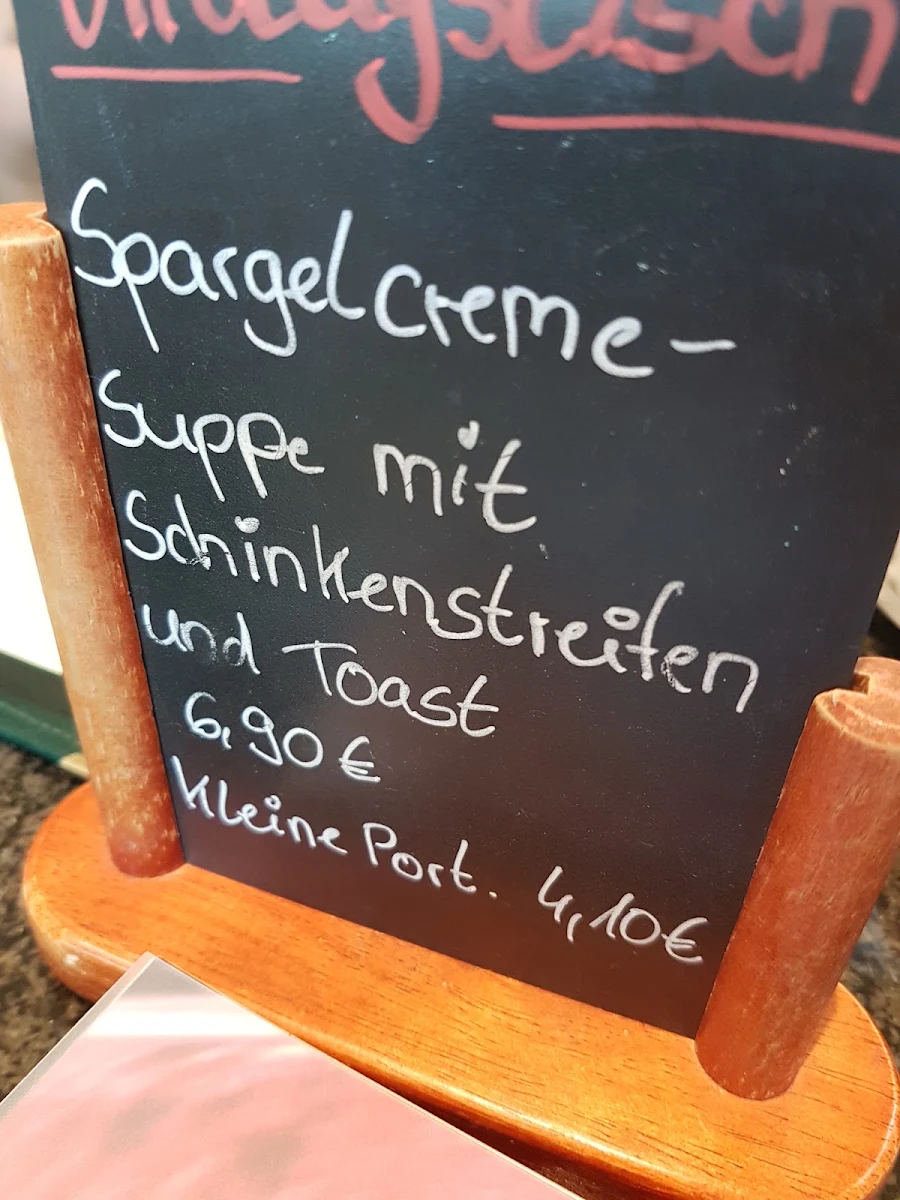 Mittagstisch
Spargelcreme-
Suppe mit
Schinkenstreifen
und Toast
6,90 €
Kleine Port. 4,10€